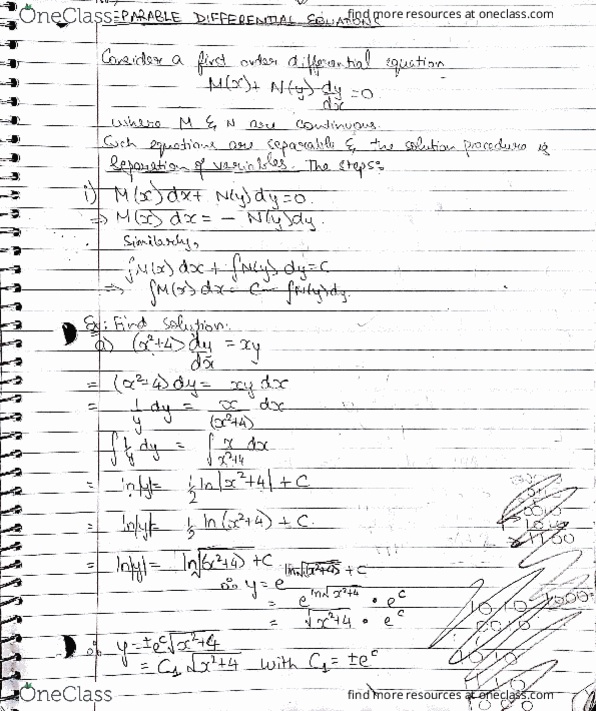 OneClass
find more resources at oneclass.com
SEPARABLE DIFFERENTIAL EQUATIONS
Consider a first order differential equation
M(x) + N(y) dy/dx = 0
where M & N are continuous.
Such equations are separable & the solution procedure is
separation of variables. The steps:
i) M(x) dx + N(y) dy = 0.
⇒ M(x) dx = - N(y) dy.
Similarly,
∫M(x) dx + ∫N(y) dy = C
⇒ ∫M(x) dx = C - ∫N(y) dy.
Ex: Find solution:
a) (x²+4) dy/dx = xy
= (x²+4) dy = xy dx
= 1/y dy = x/(x²+4) dx
∫ 1/y dy = ∫ x/x²+4 dx
= ln|y| = 1/2 ln|x²+4| + C
= ln|y| = 1/2 ln(x²+4) + C.
= ln|y| = ln√(x²+4) + C
∴ y = e^ln√(x²+4) + C
= e^ln√x²+4 • e^c
= √x²+4 • e^c
∴ y = ±e^c √x²+4
= C₁ √x²+4 with C₁ = ±e^c
OneClass
find more resources at oneclass.com